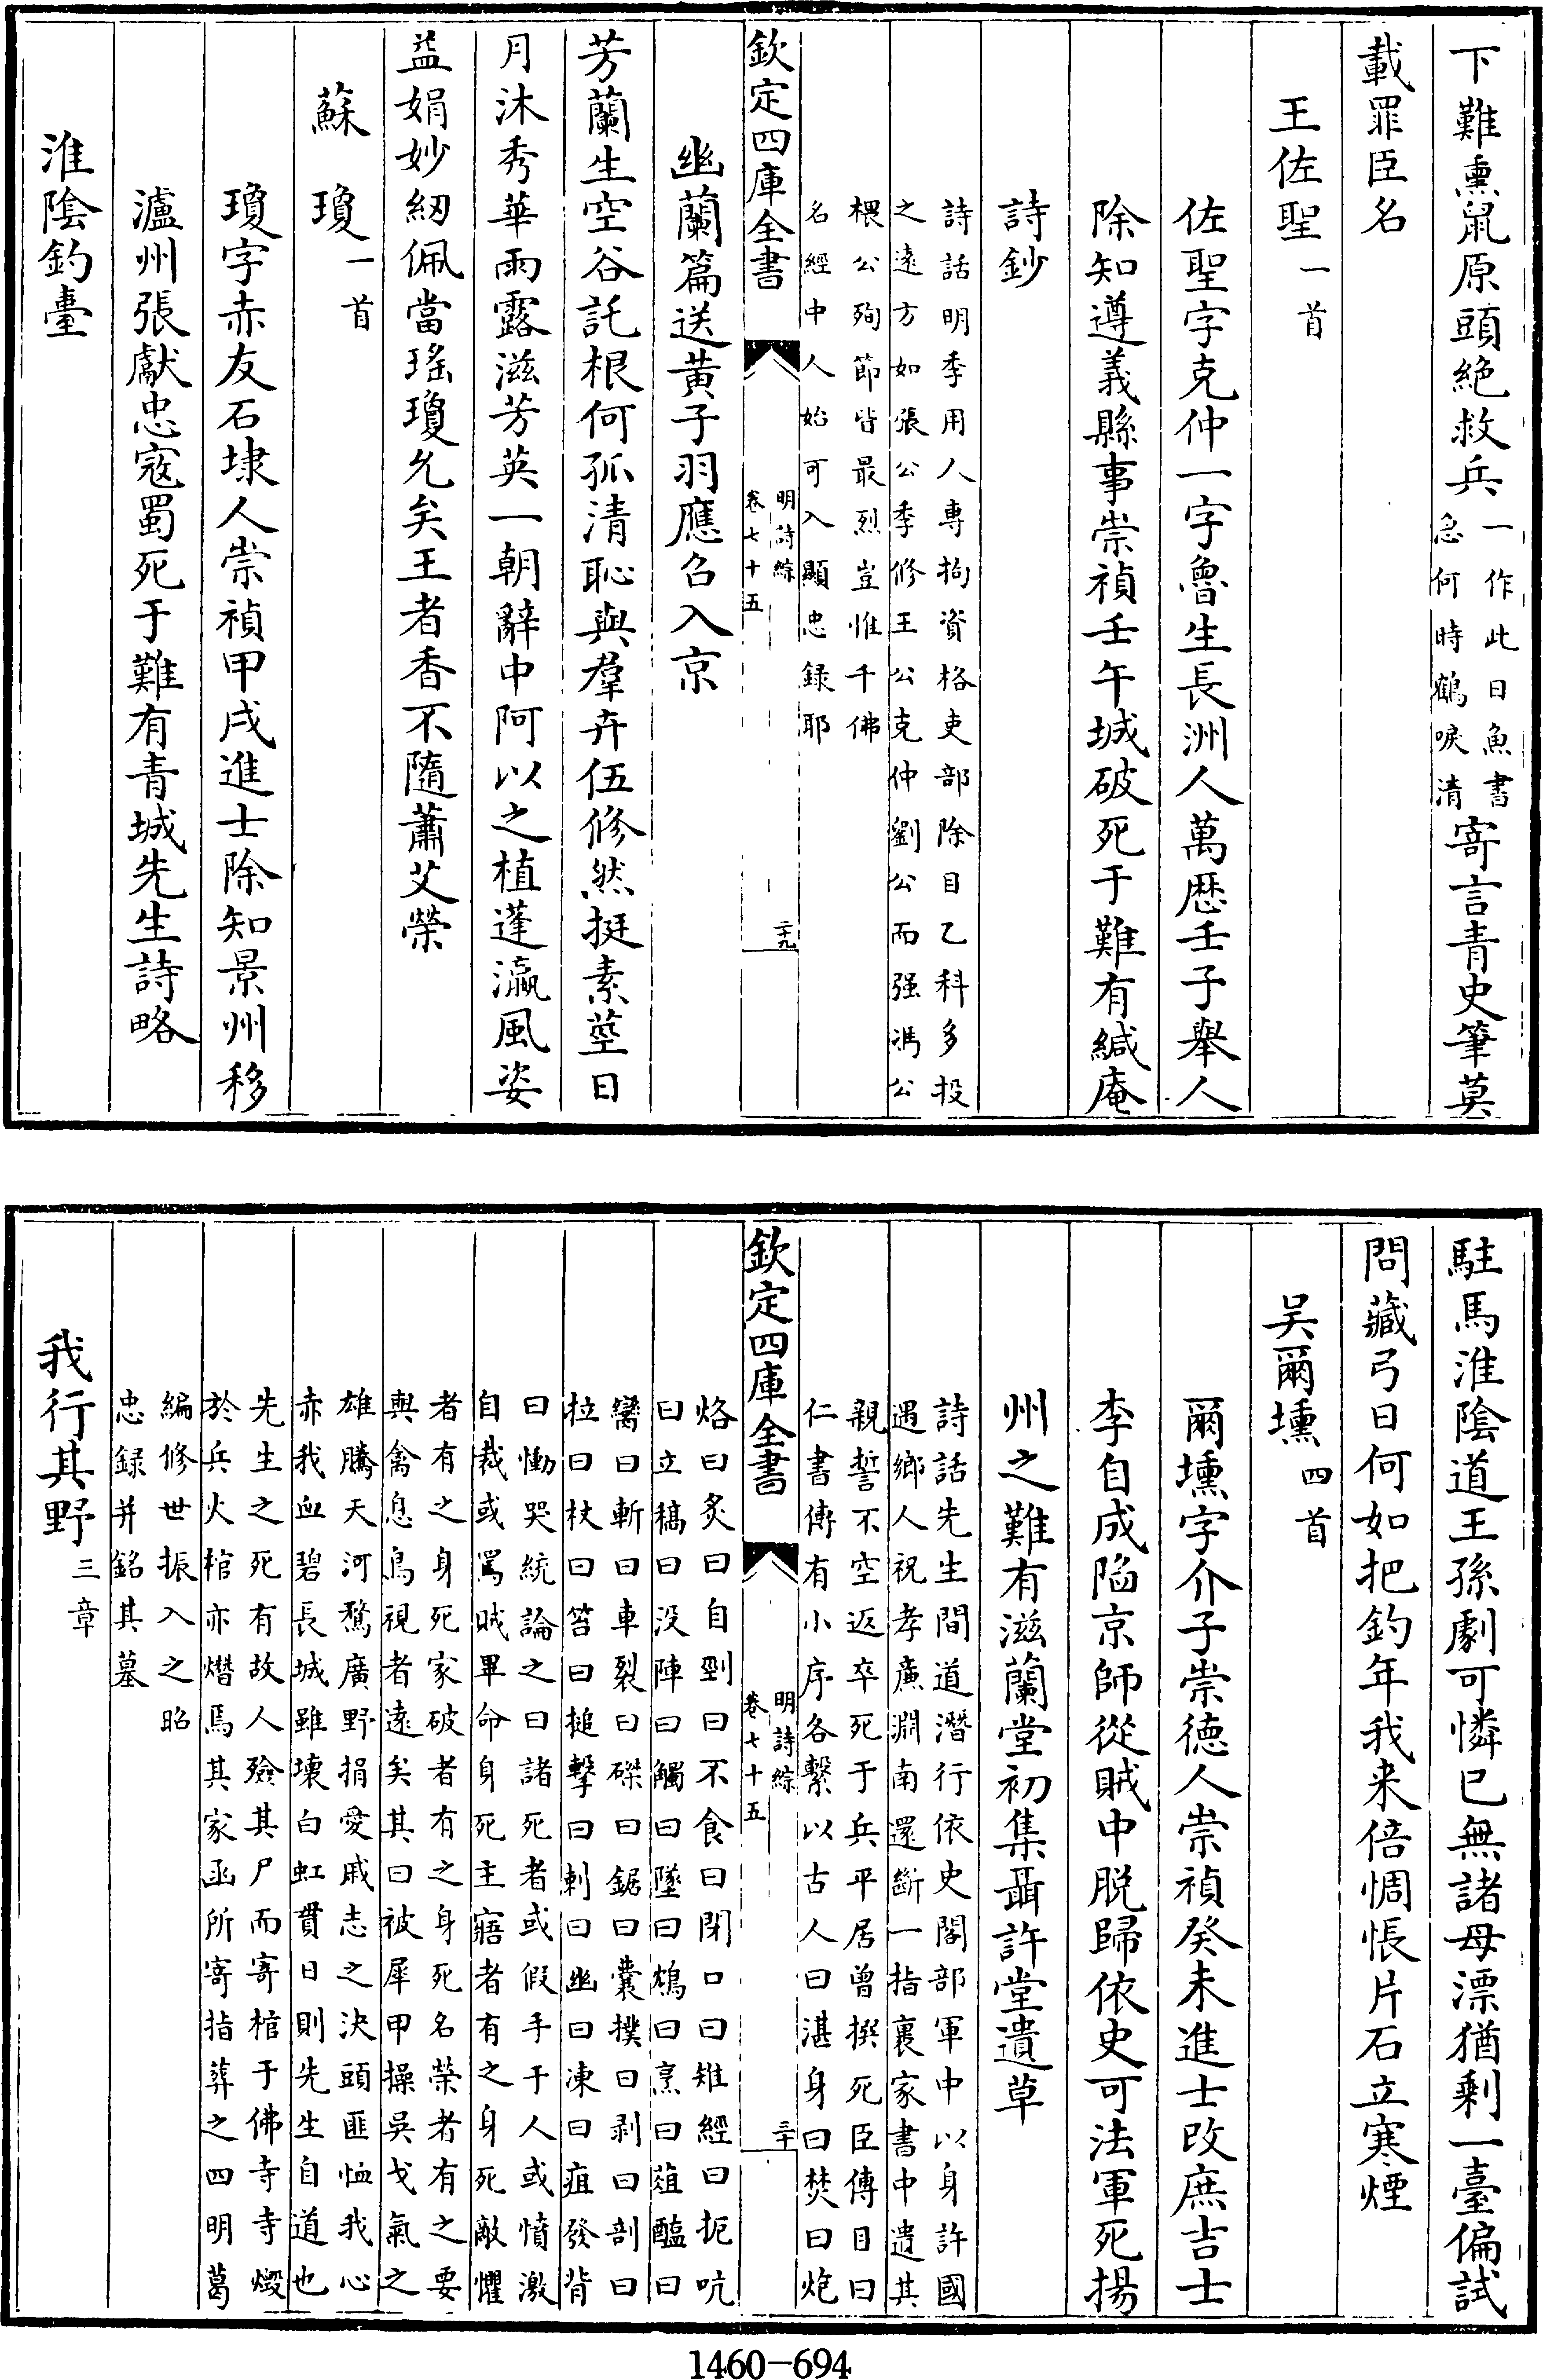 下難熏鼠原頭絶救兵一作此日魚書急何時鶴唳清寄言青史筆莫
載罪臣名
王佐聖一首
佐聖字克仲一字魯生長洲人萬厯壬子舉人
除知遵義縣事崇禎壬午城破死于難有緘庵
詩鈔
詩話明季用人專拘資格吏部除目乙科多投
之遠方如張公季修王公克仲劉公而强馮公
楒公殉節皆最烈豈惟千佛
名經中人始可入顯忠録耶
欽定四庫全書
明詩綜
卷七十五
二十九
幽蘭篇送黄子羽應召入京
芳蘭生空谷託根何孤清恥與羣卉伍修然挺素莖日
月沐秀華雨露滋芳英一朝辭中阿以之植蓬瀛風姿
益娟妙紉佩當瑤瓊允矣王者香不隨蕭艾榮
蘇瓊一首
瓊字赤友石埭人崇禎甲戌進士除知景州移
瀘州張獻忠寇蜀死于難有青城先生詩略
淮隂釣臺
駐馬淮隂道王孫劇可憐已無諸母漂猶剩一臺偏試
問藏弓日何如把釣年我来倍惆悵片石立寒煙
吴爾壎四首
爾壎字介子崇徳人崇禎癸未進士改庶吉士
李自成陷京師從賊中脱歸依史可法軍死揚
州之難有滋蘭堂初集聶許堂遺草
詩話先生間道潛行依史閣部軍中以身許國
遇鄉人祝孝亷淵南還斷一指裹家書中遺其
親誓不空返卒死于兵平居曾撰死臣傳目曰
仁書傳有小序各繫以古人曰湛身曰焚曰炮
欽定四庫全書
明詩綜
卷七十五
三十
烙曰炙曰自剄曰不食曰閉口曰雉經曰扼吭
曰立稿曰没陣曰觸曰墜曰鴆曰烹曰葅醢曰
臠曰斬曰車裂曰磔曰鋸曰囊撲曰剥曰剖曰
拉曰杖曰笞曰搥擊曰剌曰幽曰凍曰疽發背
曰慟哭統論之曰諸死者或假手于人或憤激
自裁或罵賊畢命身死主寤者有之身死敵懼
者有之身死家破者有之身死名榮者有之要
與禽息鳥視者遠矣其曰被犀甲操吳戈氣之
雄騰天河騖廣野捐愛戚志之決頭匪恤我心
赤我血碧長城雖壞白虹貫日則先生自道也
先生之死有故人殮其尸而寄棺于佛寺寺燬
於兵火棺亦燬焉其家函所寄指葬之四明葛
編修世振入之昭
忠録并銘其墓
我行其野三章
1460-694